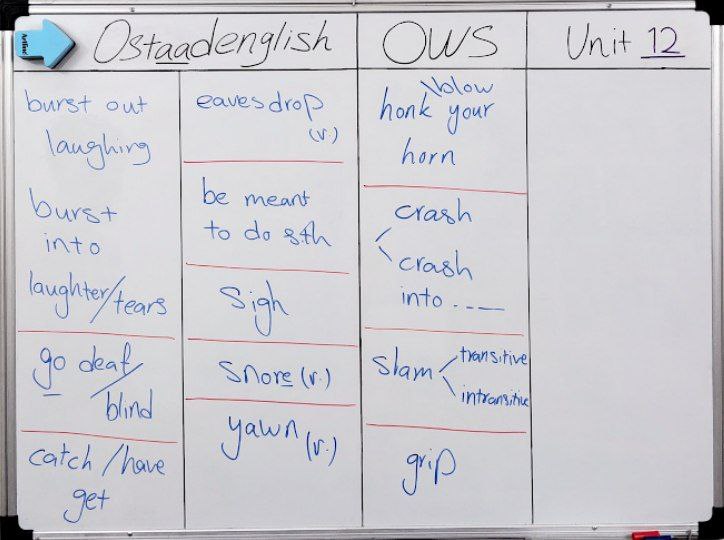 Ostaadenglish
OWS
Unit 12
burst out
laughing
burst
into
laughter/tears
go deaf/
blind
catch/have
get
eavesdrop
(v.)
be meant
to do sth
sigh
snore (v.)
yawn (v.)
\blow
honk your
horn
crash
crash
into ----
slam transitive
intransitive
grip